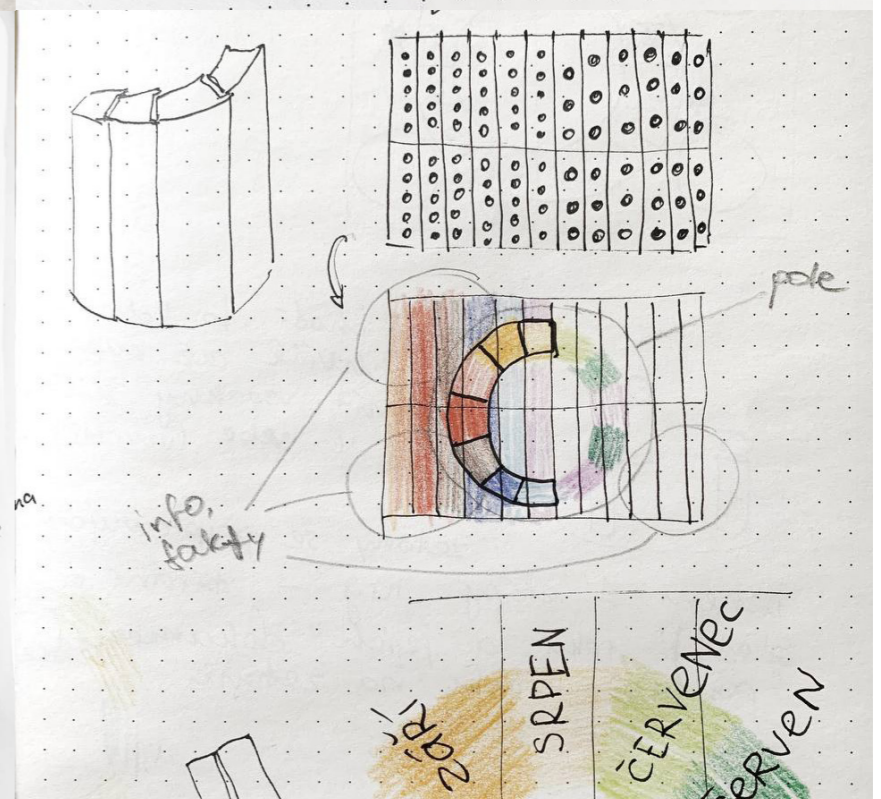 pole
na
info,
fakty
ZÁŘÍ
SRPEN
ČERVENEC
ČERVEN